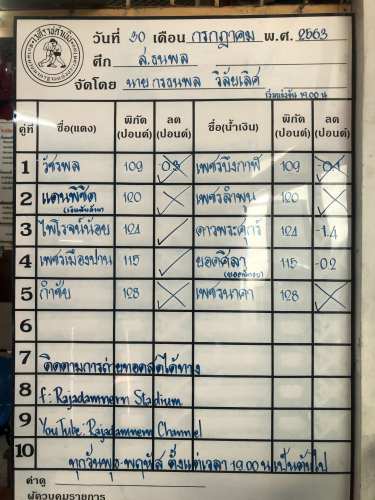 วันที่ 30 เดือน กรกฎาคม พ.ศ. 2563
ศึก ส.ธนพล
จัดโดย นายกรธนพล วิลัยเลิศ
เริ่มแข่งขัน 19.00 น
คู่ที่ ชื่อ(แดง) พิกัด (ปอนด์) ลด (ปอนด์) ชื่อ(น้ำเงิน) พิกัด (ปอนด์) ลด (ปอนด์)
1 วัชรพล 109 -0.3 เพชรบึงกาฬ 109 -0.1
2 แดนพิชิต 120 เพชรลำพูน 120
3 ไพโรจน์น้อย 124 ดาวพระศุกร์ 124 -1.4
4 เพชรเมืองปาน 115 ยอดศิลา 115 -0.2
5 กำชัย 128 เพชรนาคา 128
6
7 ติดตามการถ่ายทอดสดได้ทาง
8 f: Rajadamnern Stadium
9 YouTube: Rajadamnern Channel
10 ทุกวันพุธ-พฤหัส ตั้งแต่เวลา 19.00 น เป็นต้นไป
ค่าดู
ผู้ควบคุมรายการ